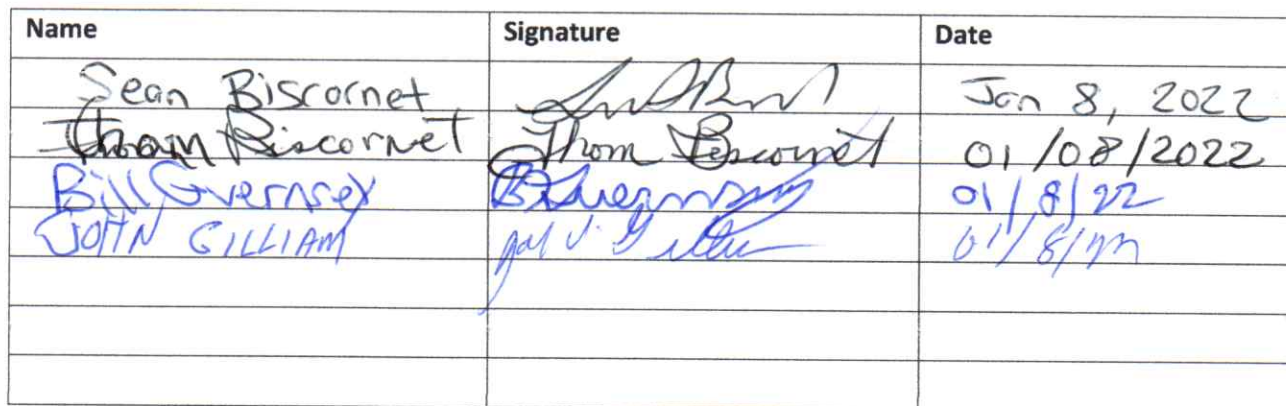 Name Signature Date
Sean Biscornet Jan 8, 2022
Thom Biscornet Thom Biscornet 01/08/2022
Bill Guernsey B Guernsey 01/8/22
JOHN GILLIAM 01/8/22